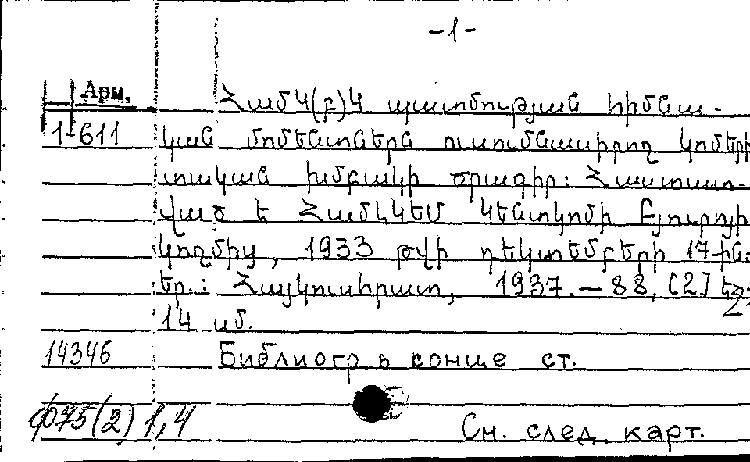 -1-
Арм.
1-611
ՀամԿ(բ)Կ պատմության հիմնա-
կան մոմենտներն ուսումնասիրող կոմերի
տական խմբակի ծրագիր: Հաստատ-
ված է ՀամԼԿԵՄ Կենտկոմի բյուրոյի
կողմից, 1933 թվի դեկտեմբերի 17-ին:
Եր.: Հայկուսհրատ, 1937. - 88, [2] էջ;
14 սմ.
14346 Библиогр в конце ст.
ф75(2) 1,4
См. след. карт.